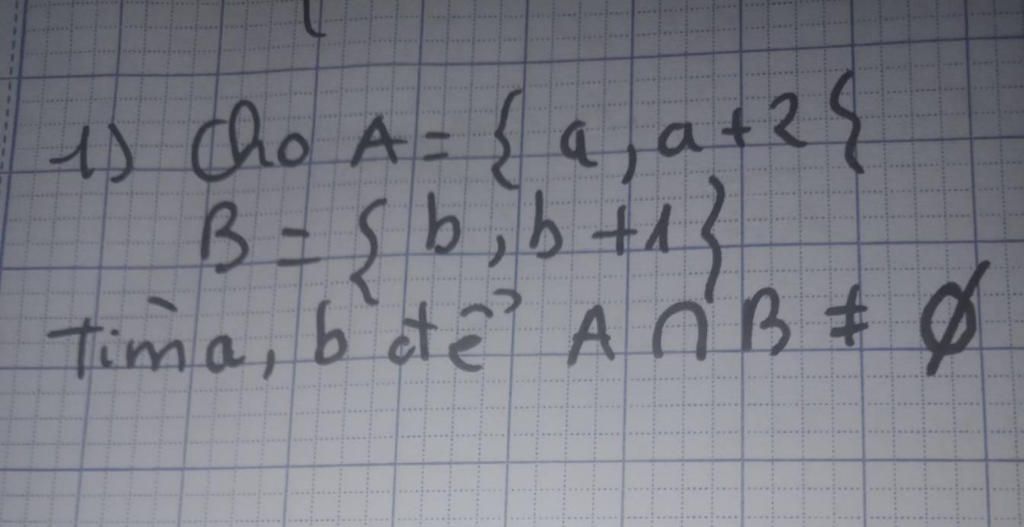 1) Cho A = { a, a + 2 {
B = { b, b + 1 }
Tìm a, b để A ∩ B ≠ ∅